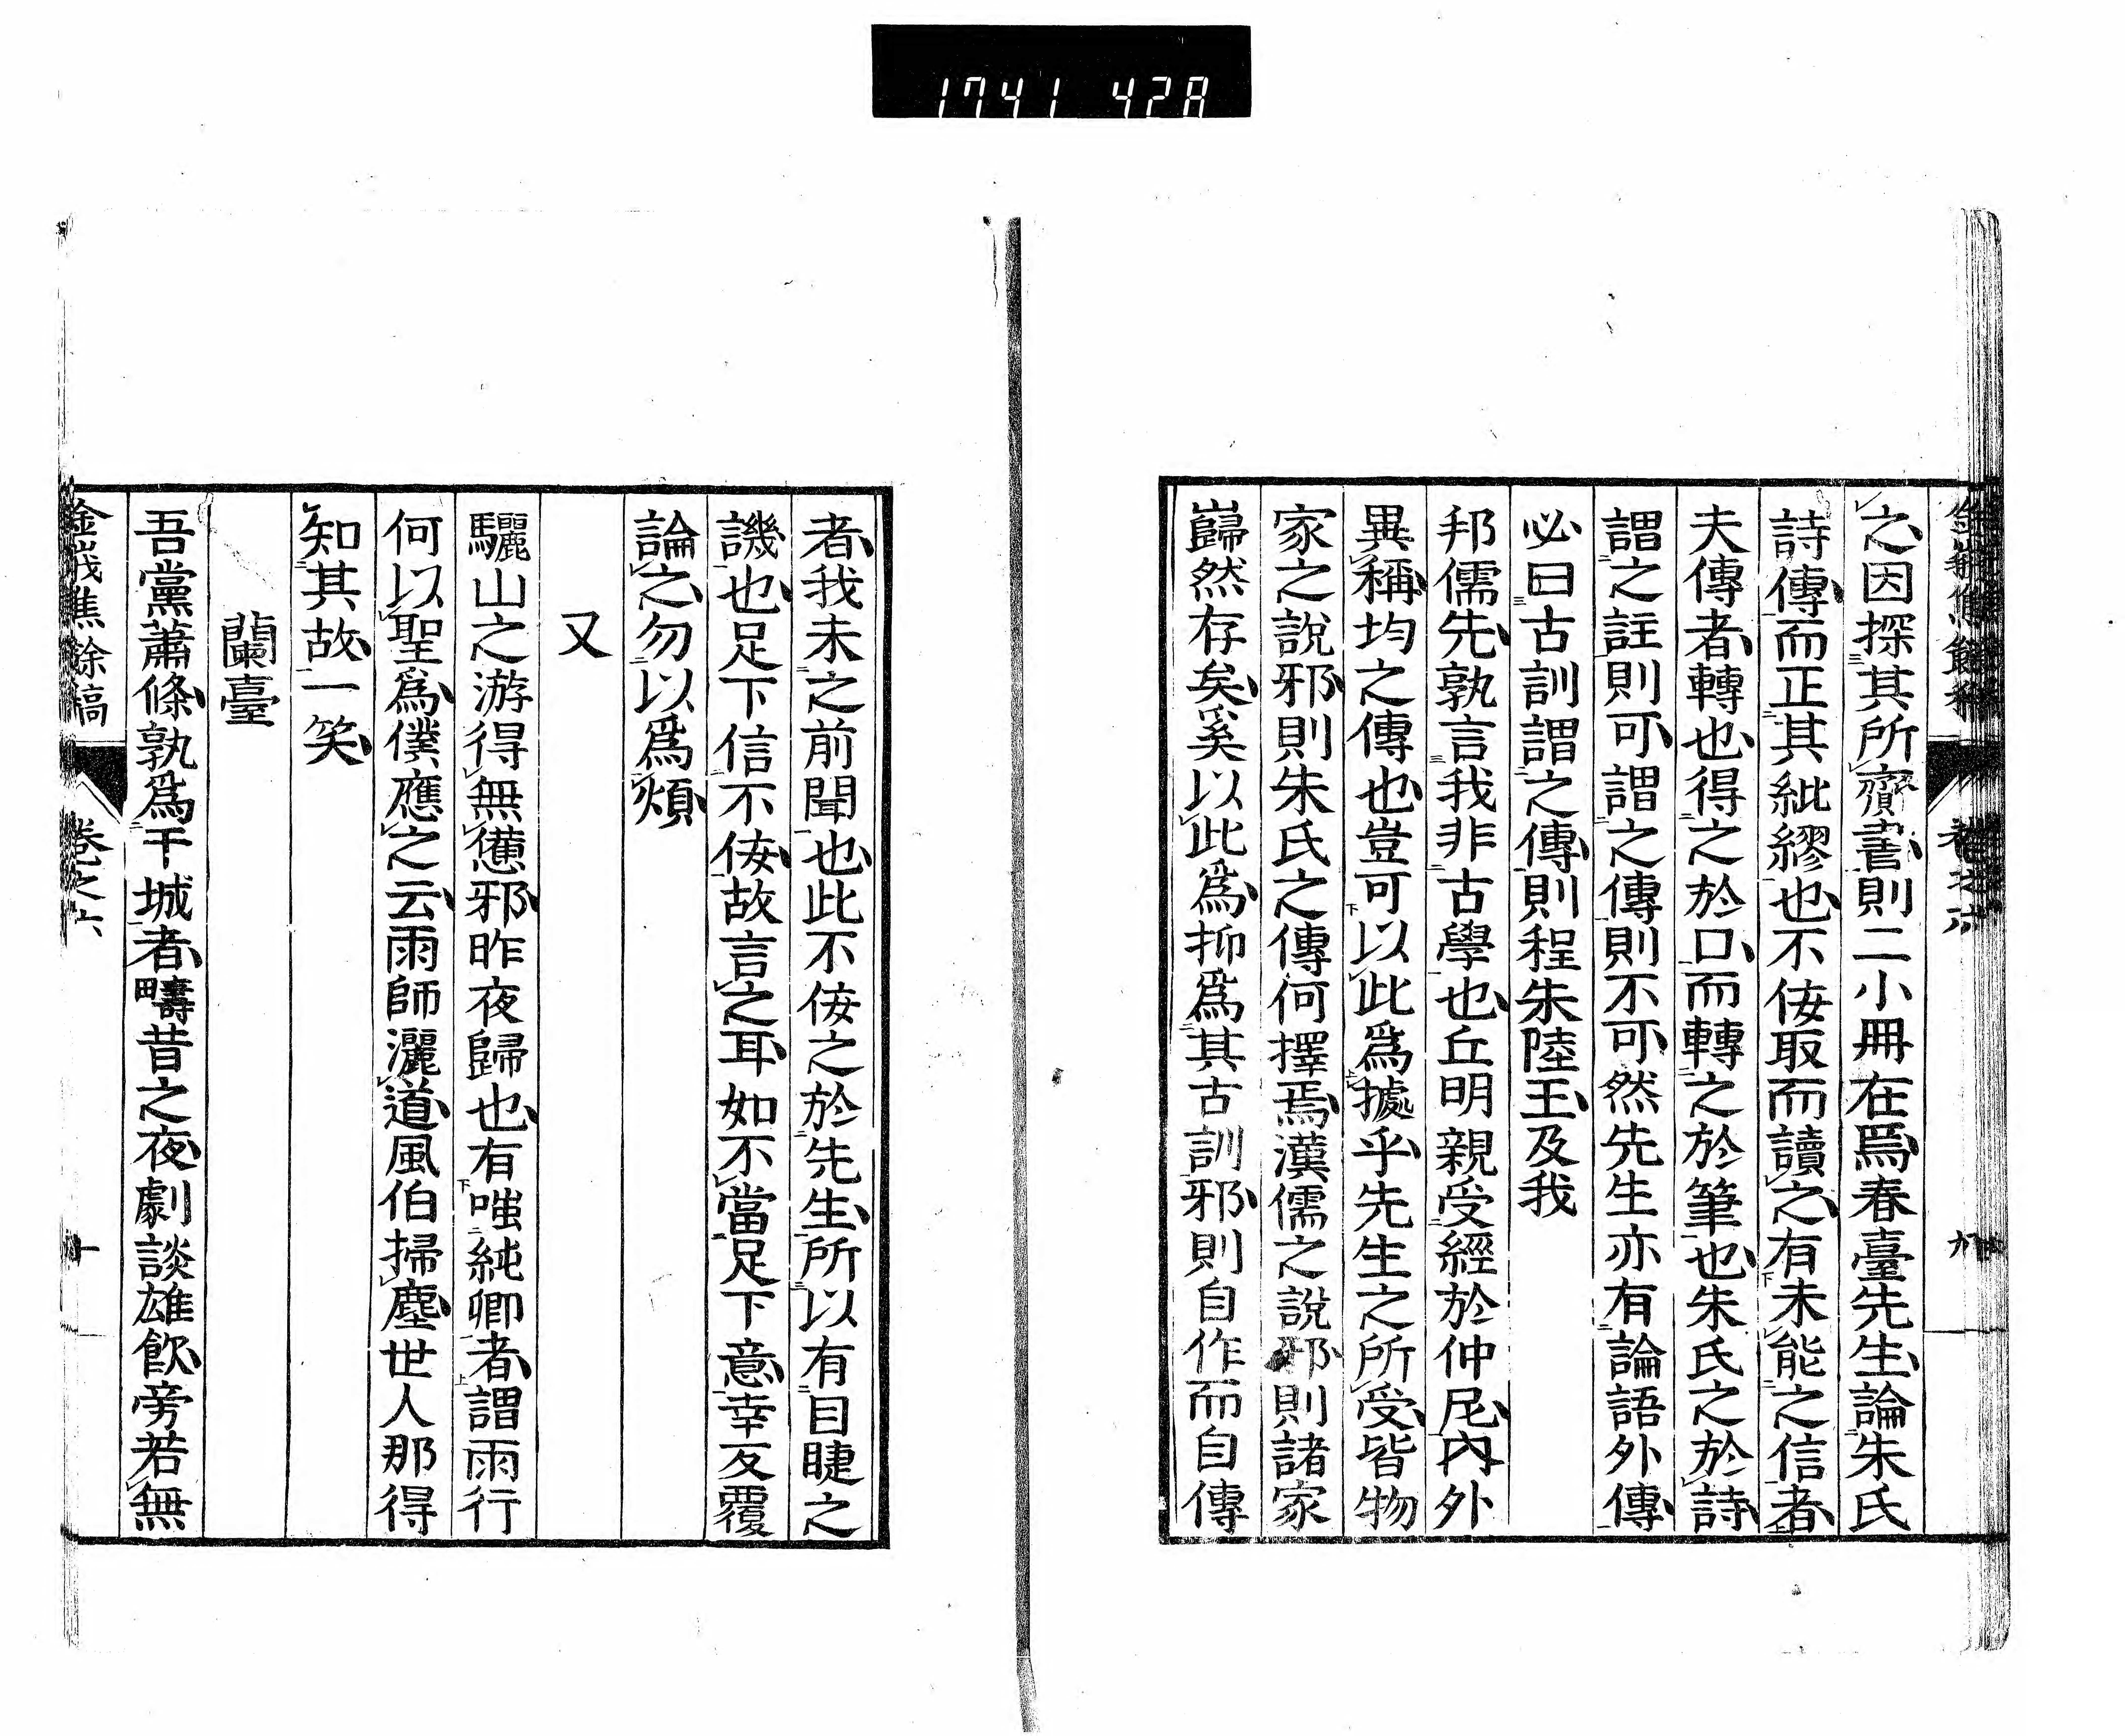 1741 428
之因探其所齎書則二小冊在焉春臺先生論朱氏
詩傳而正其紕繆也不佞取而讀之有未能之信者
夫傳者轉也得之於口而轉之於筆也朱氏之於詩
謂之註則可謂之傳則不可然先生亦有論語外傳
必曰古訓謂之傳則程朱陸王及我
邦儒先孰言我非古學也丘明親受經於仲尼內外
異稱均之傳也豈可以此爲據乎先生之所受皆物
家之說邪則朱氏之傳何擇焉漢儒之說邪則諸家
巋然存矣奚以此爲抑爲其古訓邪則自作而自傳
者我未之前聞也此不佞之於先生所以有目睫之
譏也足下信不佞故言之耳如不當足下意幸反覆
論之勿以爲煩
又
驪山之游得無憊邪昨夜歸也有嗤純卿者謂雨行
何以聖爲僕應之云雨師灑道風伯掃塵世人那得
知其故一笑
蘭臺
吾黨蕭條孰爲干城者疇昔之夜劇談雄飮旁若無
金峩焦餘稿 卷之六 十